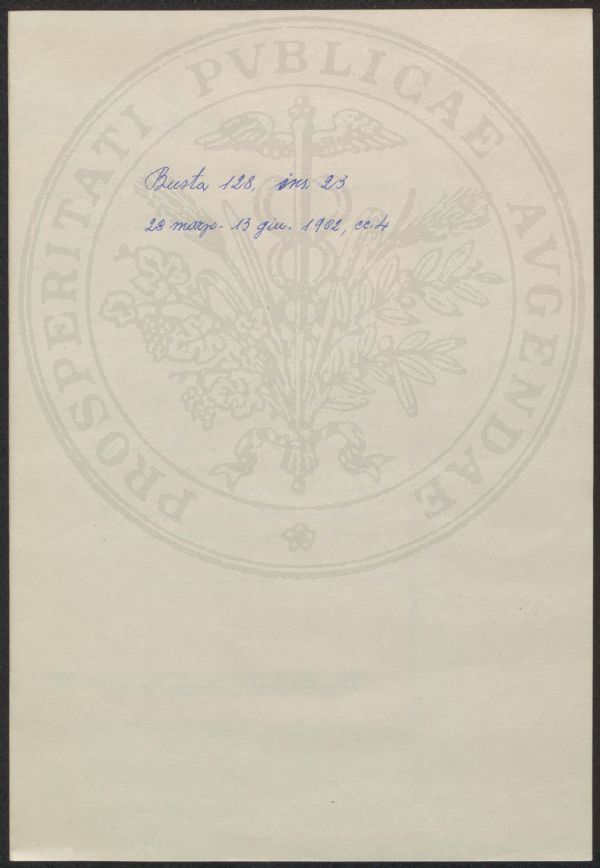 PROSPERITATI PVBLICAE AVGENDAE
Busta 128, ins. 23
28 marzo - 13 giu. 1902, cc. 4